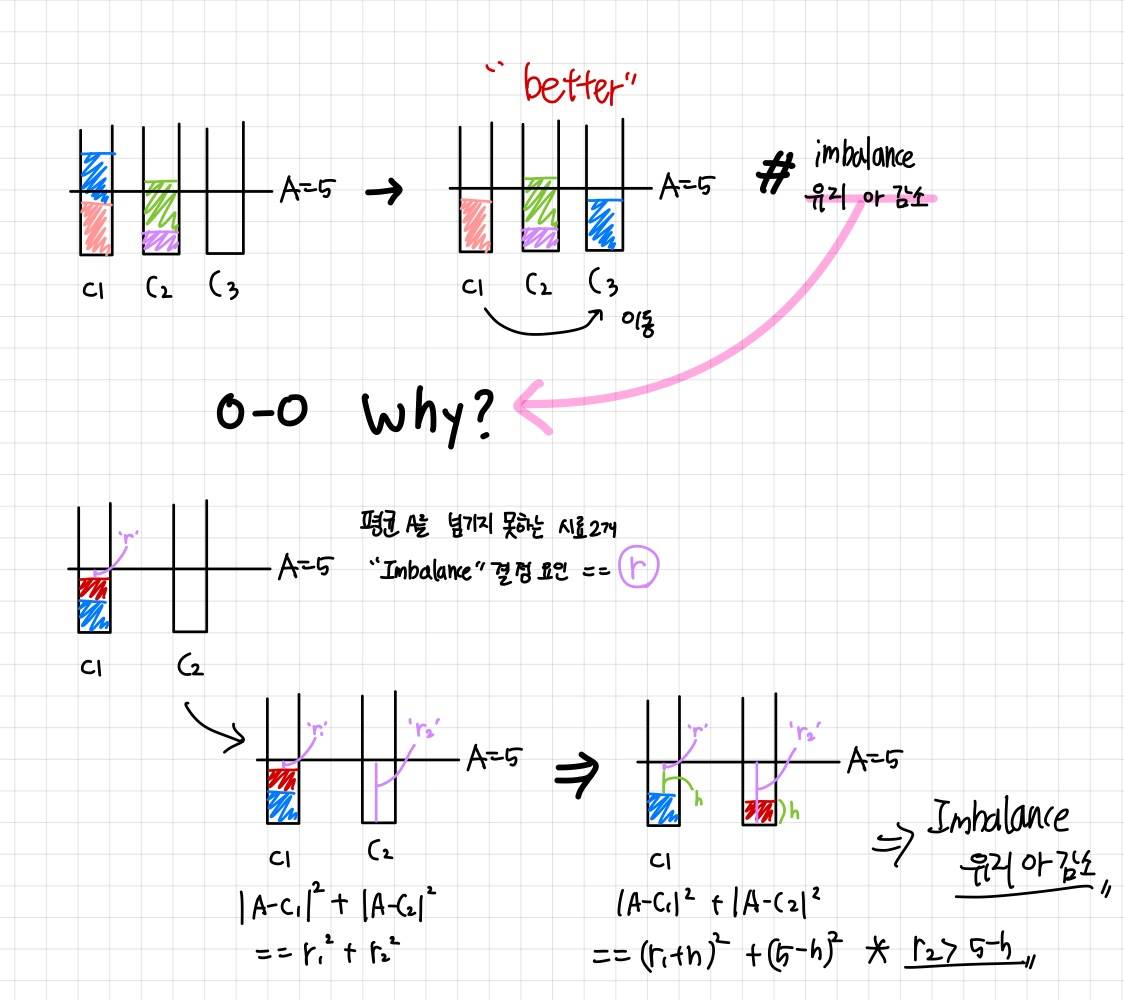 "better"
A=5
A=5
# imbalance
유리 아 감소
C1 C2 C3
C1 C2 C3
이동
0-0 Why?
'r'
A=5
평균 A를 넘기지 못하는 시료 2개
"Imbalance" 결정 요인 == r
C1 C2
'r1' 'r2'
A=5
'r' 'r2'
A=5
h
h
C1 C2
C1
⇒ Imbalance
유리 아 감소 〃
|A-C1|² + |A-C2|²
== r1² + r2²
|A-C1|² + |A-C2|²
== (r1+h)² + (5-h)² * r2 > 5-h 〃